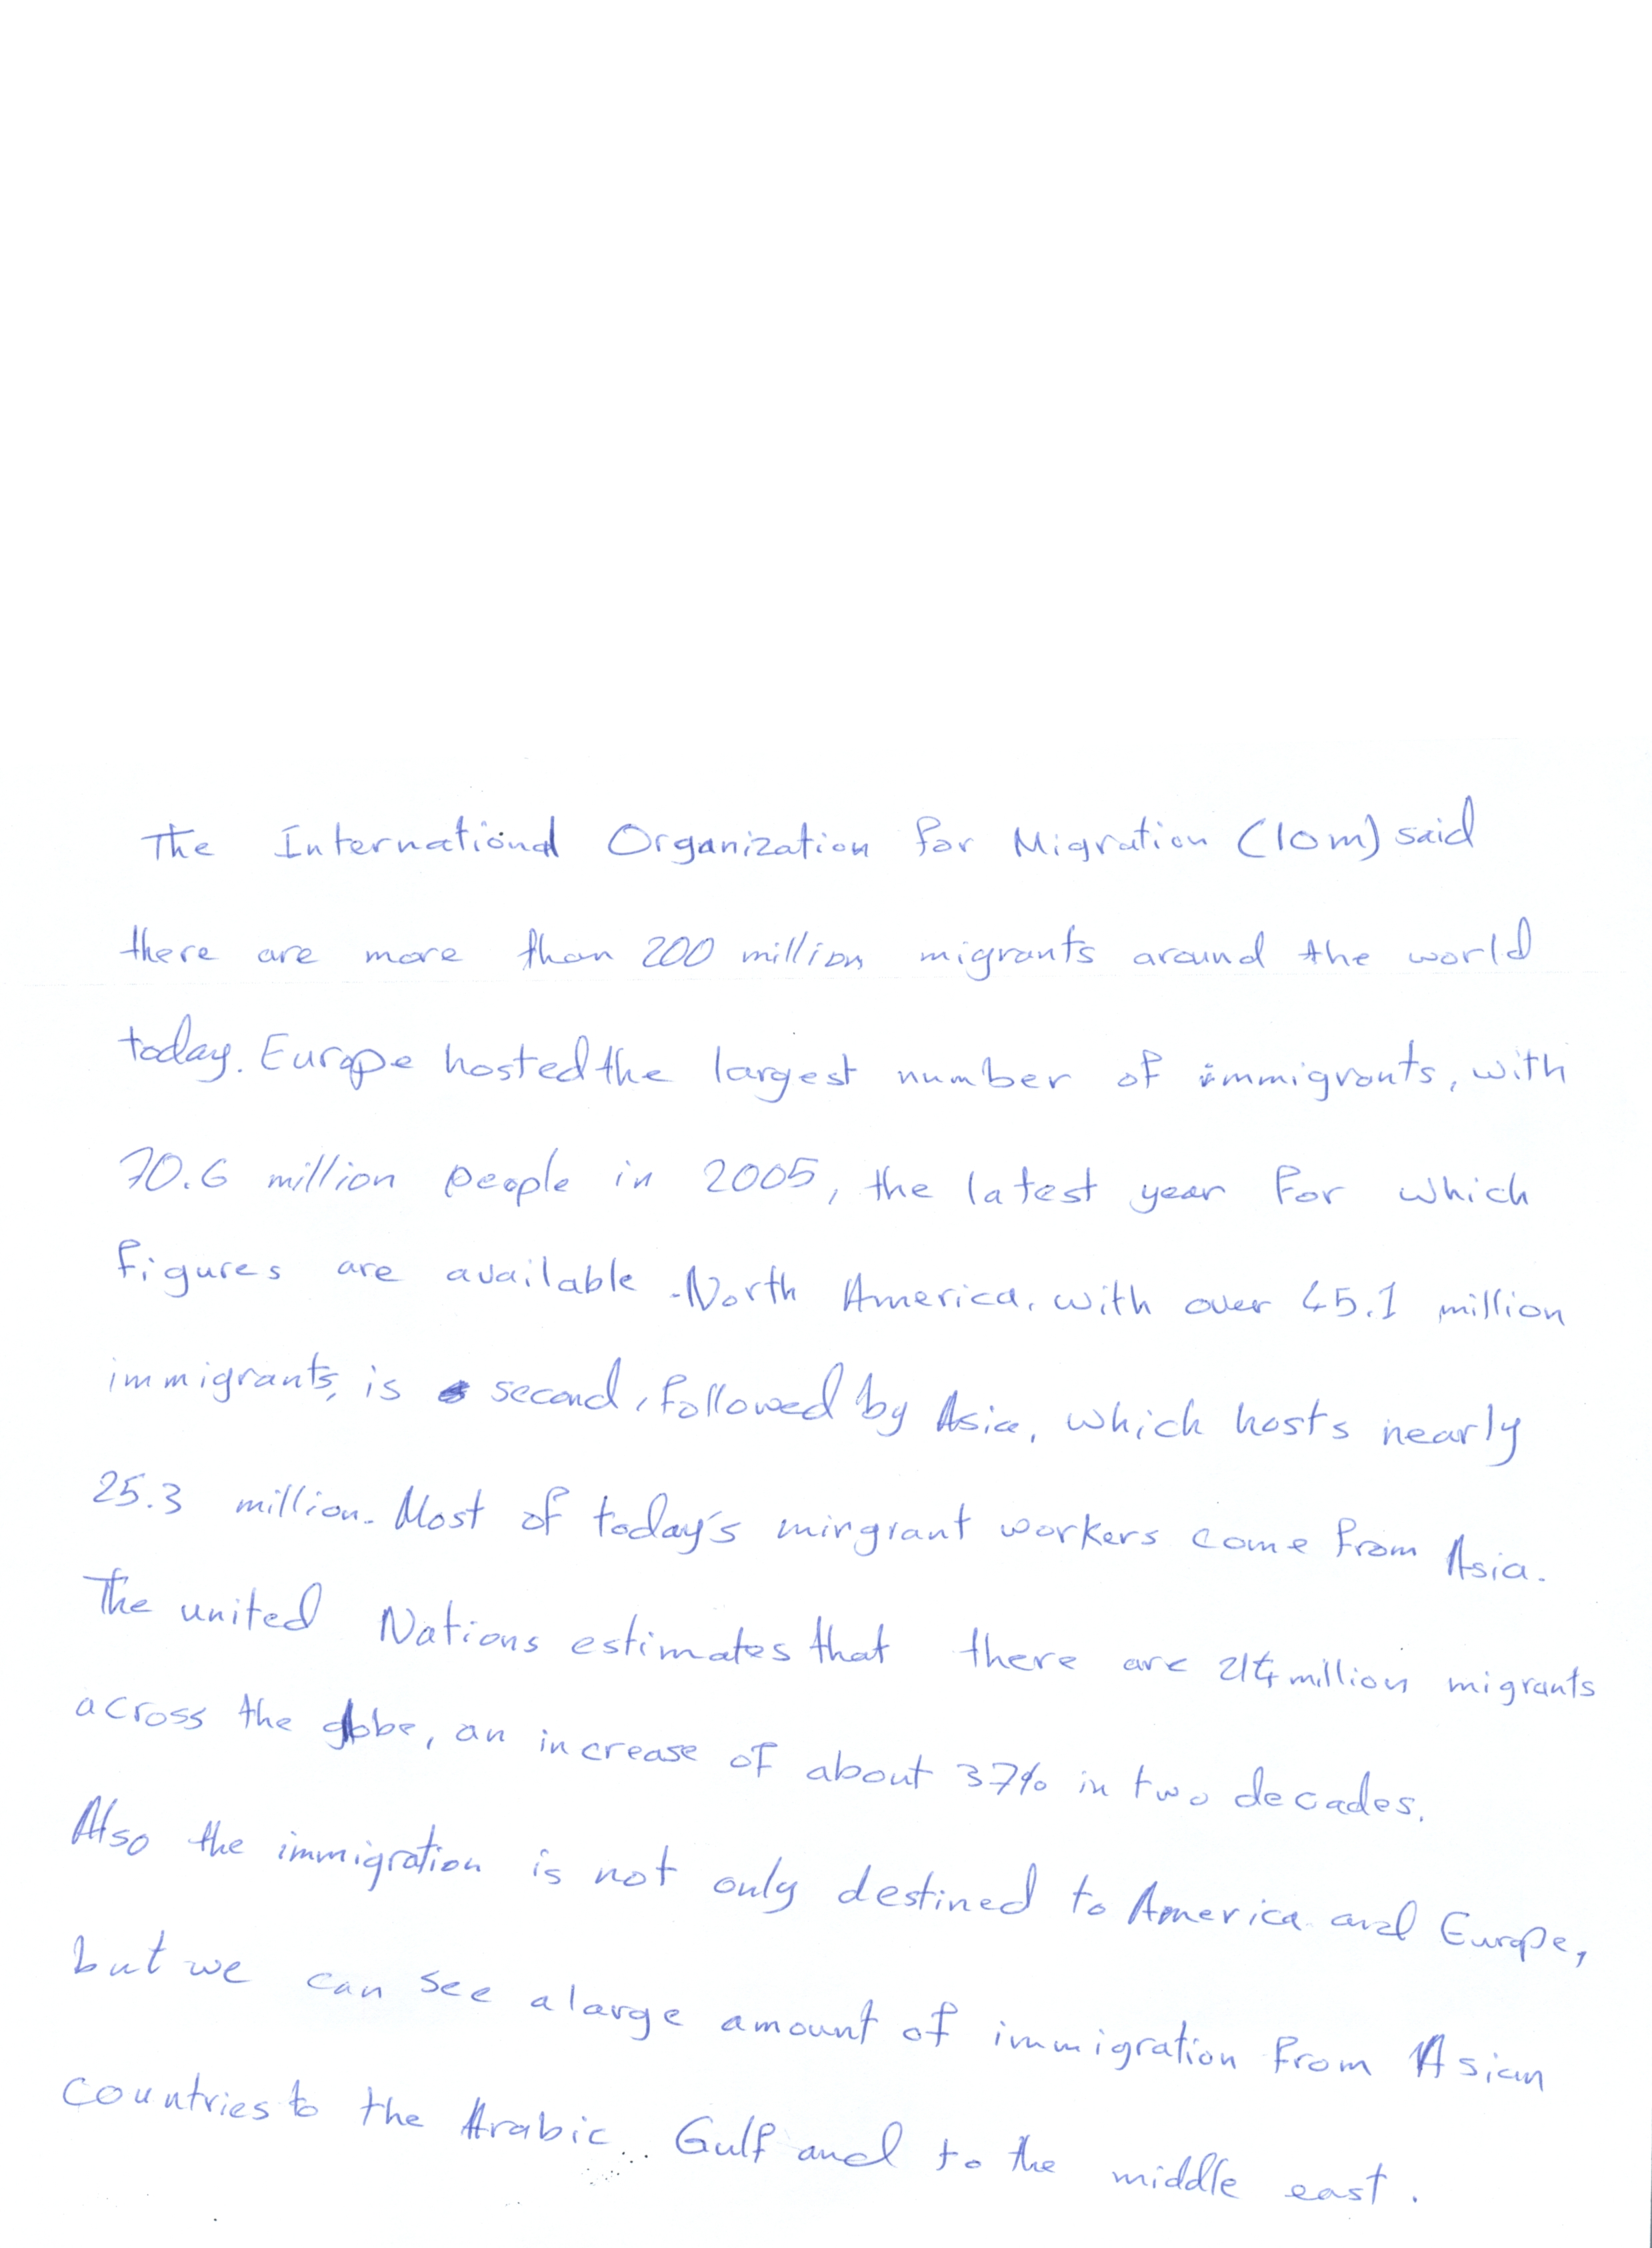 The International Organization for Migration (IOM) said
there are more than 200 million migrants around the world
today. Europe hosted the largest number of immigrants, with
70.6 million people in 2005, the latest year for which
figures are available. North America, with over 45.1 million
immigrants, is second, followed by Asia, which hosts nearly
25.3 million. Most of today's mirgrant workers come from Asia.
The united Nations estimates that there are 214 million migrants
across the globe, an increase of about 37% in two decades.
Also the immigration is not only destined to America and Europe,
but we can see a large amount of immigration from Asian
countries to the Arabic Gulf and to the middle east.